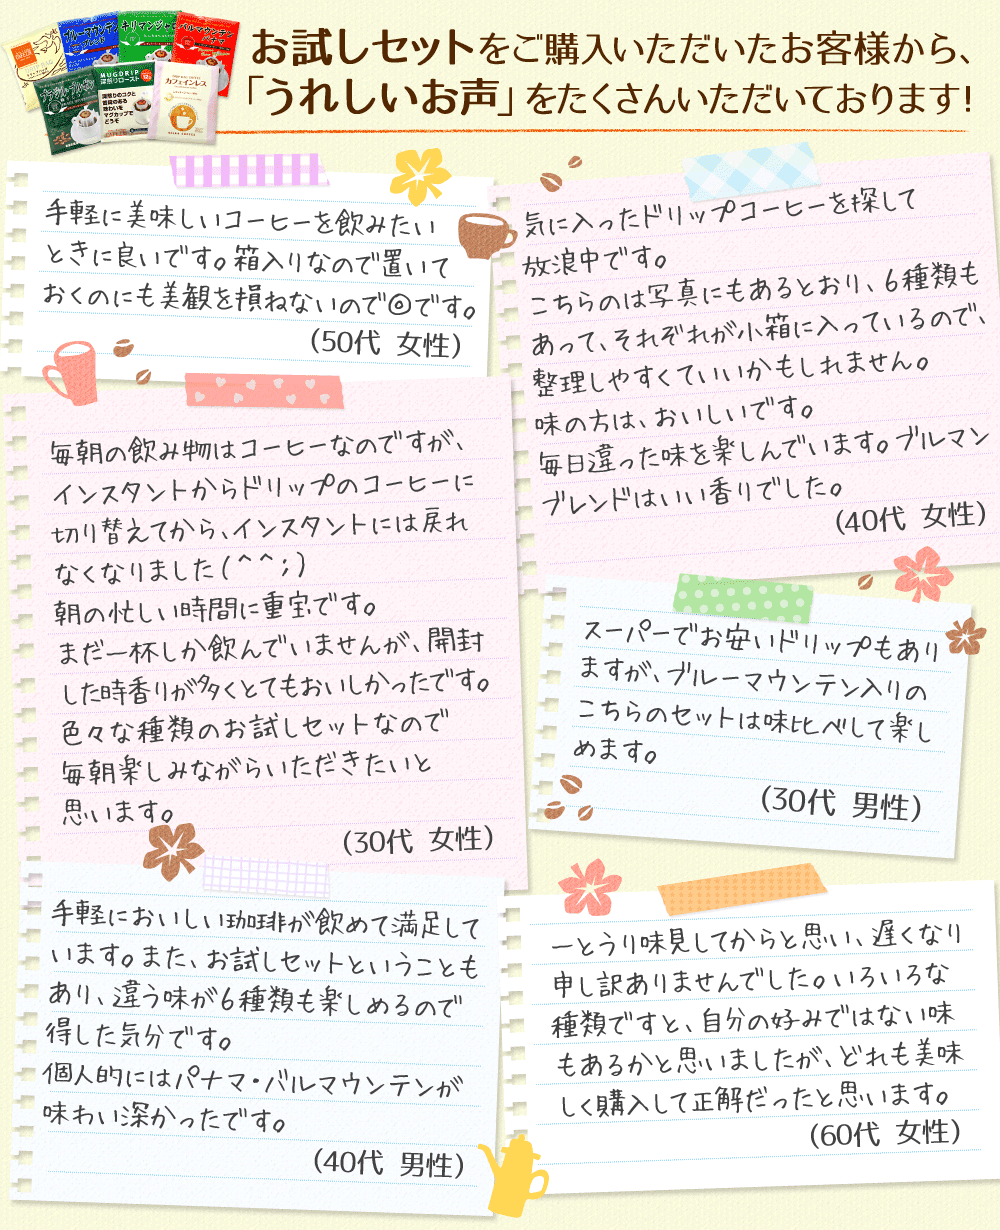 お試しセットをご購入いただいたお客様から、
「うれしいお声」をたくさんいただいております!
ブルーマウンテン
ブレンド
キリマンジャロ
バルマウンテン
パナマ
MUGDRIP
深煎りロースト
深煎りのコクと
苦味のある
味わいを
マグカップで
どうぞ
カフェインレス
手軽に美味しいコーヒーを飲みたい
ときに良いです。箱入りなので置いて
おくのにも美観を損ねないので◎です。
(50代 女性)
気に入ったドリップコーヒーを探して
放浪中です。
こちらのは写真にもあるとおり、6種類も
あって、それぞれが小箱に入っているので、
整理しやすくていいかもしれません。
味の方は、おいしいです。
毎日違った味を楽しんでいます。ブルマン
ブレンドはいい香りでした。
(40代 女性)
毎朝の飲み物はコーヒーなのですが、
インスタントからドリップのコーヒーに
切り替えてから、インスタントには戻れ
なくなりました(^^;)
朝の忙しい時間に重宝です。
まだ一杯しか飲んでいませんが、開封
した時香りが多くとてもおいしかったです。
色々な種類のお試しセットなので
毎朝楽しみながらいただきたいと
思います。
(30代 女性)
スーパーでお安いドリップもあり
ますが、ブルーマウンテン入りの
こちらのセットは味比べして楽し
めます。
(30代 男性)
手軽においしい珈琲が飲めて満足して
います。また、お試しセットということも
あり、違う味が6種類も楽しめるので
得した気分です。
個人的にはパナマ・バルマウンテンが
味わい深かったです。
(40代 男性)
一とうり味見してからと思い、遅くなり
申し訳ありませんでした。いろいろな
種類ですと、自分の好みではない味
もあるかと思いましたが、どれも美味
しく購入して正解だったと思います。
(60代 女性)